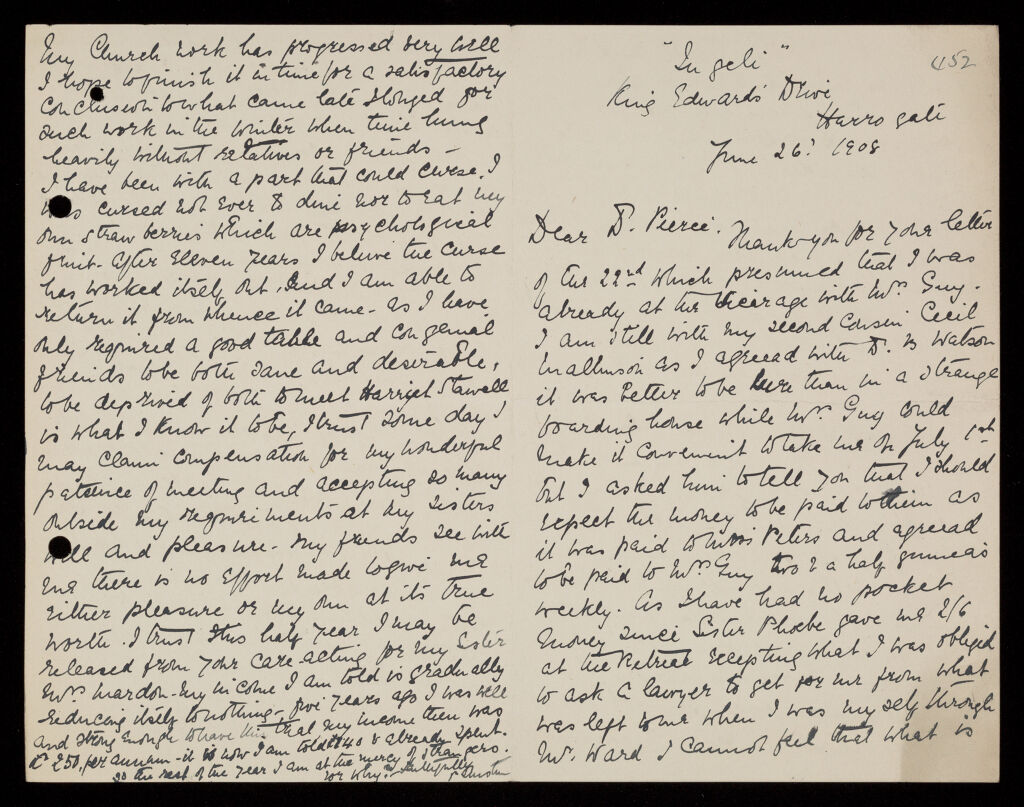 "Ingeli"
452
King Edwards Drive
Harrogate
June 26. 1908
Dear Dr. Pierce. Thank you for your letter
of the 22nd which presumed that I was
already at the Vicarage with Mrs Guy.
I am still with my second Cousin Cecil
Mallinson as I agreead with Dr. B Watson
it was better to be here than in a strange
boarding house while Mrs. Guy could
make it convenient to take me on July 1st
but I asked him to tell you that I should
expect the money to be paid to them as
it was paid to Miss Peters and agreead
to be paid to Mrs Guy two & a half guineas
weekly. As I have had no pocket
money since Sister Phoebe gave me 2/6
at the Retreat excepting what I was obliged
to ask a lawyer to get for me from what
was left to me when I was myself through
Mr. Ward I cannot feel that what is
My Church work has progressed very well
I hope to finish it in time for a satisfactory
conclusion to what came late I longed for
such work in the winter when time hung
heavily without relatives or friends -
I have been with a part that could curse. I
was cursed not ever to dine nor to eat my
own strawberries which are psychological
fruit. After eleven years I believe the curse
has worked itself out. And I am able to
return it from whence it came - as I have
only required a good table and congenial
friends to be both sane and desirable,
to be deprived of both to meet Harriet Stawell
is what I know it to be, I trust some day I
may claim compensation for my wonderful
patience of meeting and accepting so many
outside my requirements at my Sisters
will and pleasure - My friends see with
me there is no effort made to give me
either pleasure or my own at it's true
worth. I trust this half year I may be
released from your care acting for my Sister
Mrs Mardon - my income I am told is gradually
reducing itself to nothing - five years ago I was well
and strong enough to have this that my income then was
£250. per annum - it is now I am told £140 & already spent.
so the rest of the year I am at the mercy of strangers.
for why?